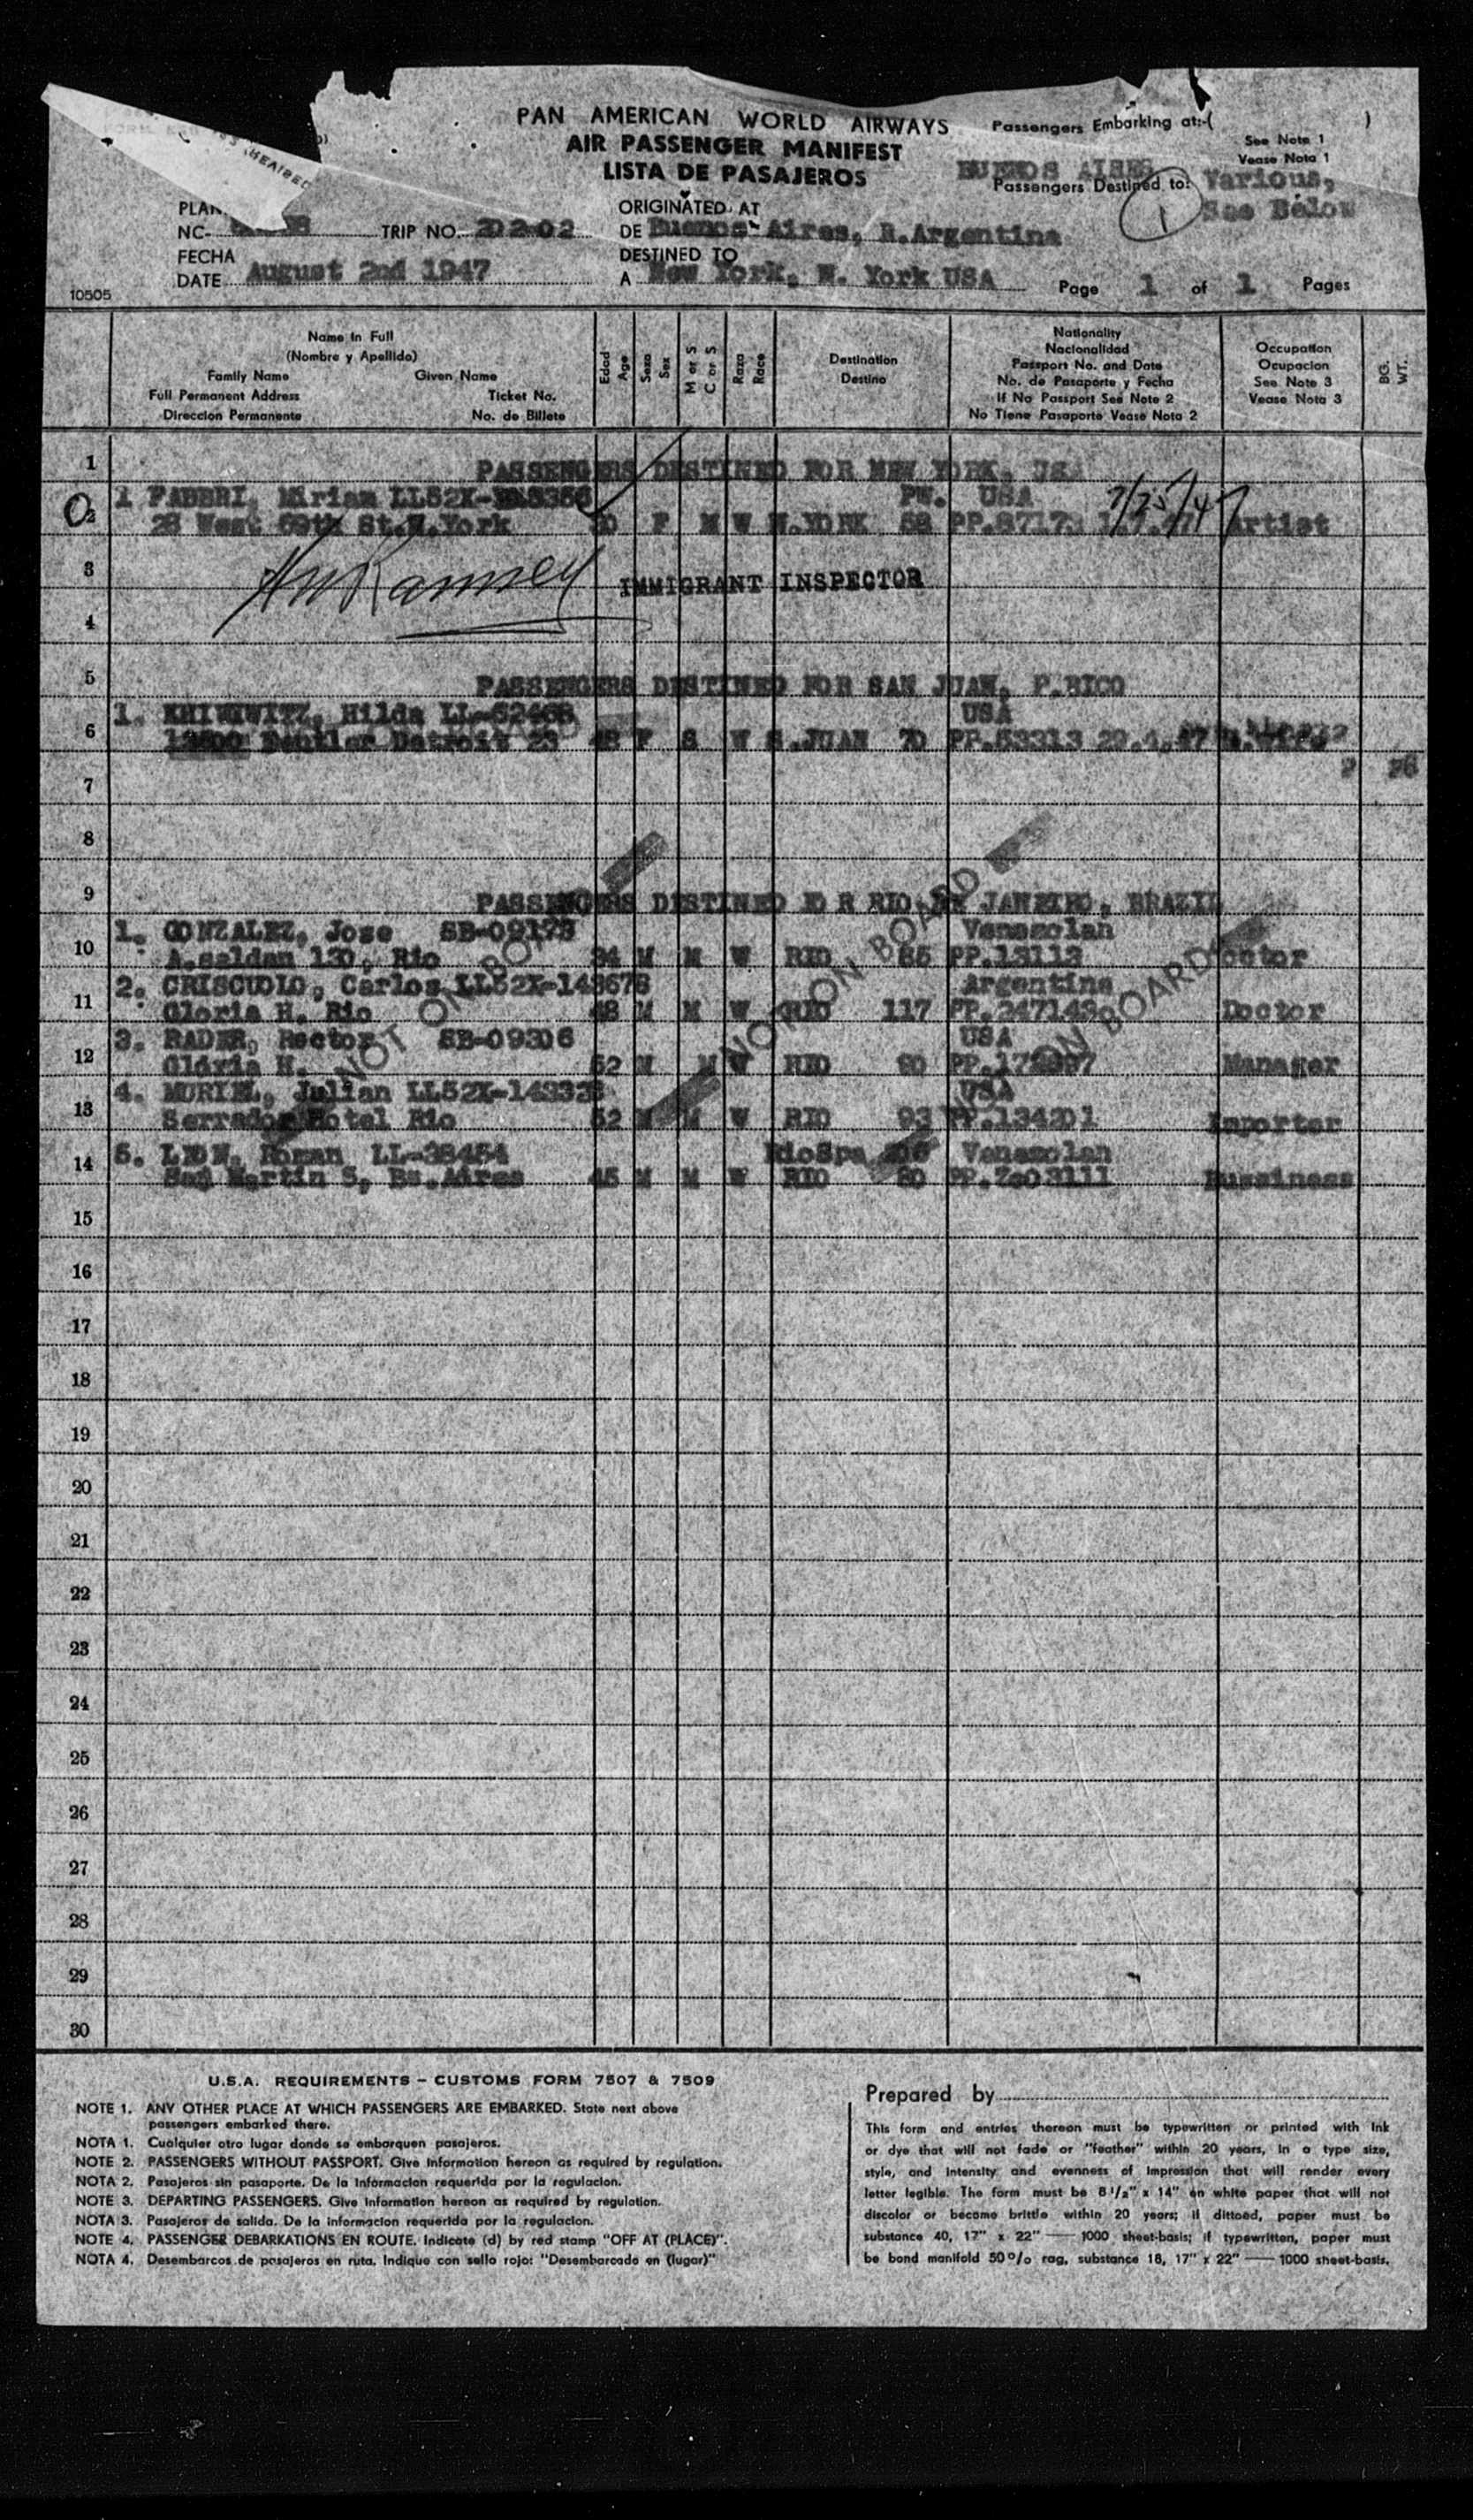 PAN AMERICAN WORLD AIRWAYS
AIR PASSENGER MANIFEST
LISTA DE PASAJEROS
Passengers Embarking at:-( )
See Note 1
Vease Nota 1
BUENOS AIRES
Passengers Destined to: Various,
See Below
1
NC- TRIP NO. 202-02
FECHA
DATE August 2nd 1947
ORIGINATED AT
DE Buenos Aires, R.Argentina
DESTINED TO
A New York, N. York USA
Page 1 of 1 Pages
10505
Name in Full
(Nombre y Apellido)
Family Name Given Name
Full Permanent Address Ticket No.
Direccion Permanente No. de Billete
Edad
Age
Sexo
Sex
M or S
C or S
Raza
Race
Destination
Destino
Nationality
Nacionalidad
Passport No. and Date
No. de Pasaporte y Fecha
If No Passport See Note 2
No Tiene Pasaporte Vease Nota 2
Occupation
Ocupacion
See Note 3
Vease Nota 3
BG.
WT.
1 PASSENGERS DESTINED FOR NEW YORK, USA
1 FABBRI, Miriam PW. USA 7/25/47
2 28 West 69th St.N.York F M W N.YORK 58 PP.87173 Artist
3 IMMIGRANT INSPECTOR
4
5 PASSENGERS DESTINED FOR SAN JUAN, P.RICO
1. Hilda LL-62468 USA
6 Detroit 23 48 F S W S.JUAN 70 PP.53313 29.4.47
7
8
9 PASSENGERS DESTINED FOR RIO DE JANEIRO, BRAZIL
1. GONZALEZ, Jose SB-09173 Venezolan
10 A.saldan 130, Rio 34 M M W RIO 85 PP.13113
2. CRISCUOLO, Carlos LL52X-143678 Argentina
11 Gloria H. Rio 48 M M W RIO 117 PP.247143 Doctor
3. RADER, Rector SB-09306 USA
12 Gloria H. 52 M M W RIO 90 Manager
4. MURIEL, Julian USA
13 Serrador Hotel Rio 52 M M W RIO 93 PP.134201 Importer
5. LEON, Roman LL-38454 Venezolan
14 San Martin 5, Bs.Aires 45 M M W RIO 80 Bussiness
NOT ON BOARD
NOT ON BOARD
ON BOARD
15
16
17
18
19
20
21
22
23
24
25
26
27
28
29
30
U.S.A. REQUIREMENTS – CUSTOMS FORM 7507 & 7509
NOTE 1. ANY OTHER PLACE AT WHICH PASSENGERS ARE EMBARKED. State next above
passengers embarked there.
NOTA 1. Cualquier otro lugar donde se embarquen pasajeros.
NOTE 2. PASSENGERS WITHOUT PASSPORT. Give Information hereon as required by regulation.
NOTA 2. Pasajeros sin pasaporte. De la informacion requerida por la regulacion.
NOTE 3. DEPARTING PASSENGERS. Give Information hereon as required by regulation.
NOTA 3. Pasajeros de salida. De la informacion requerida por la regulacion.
NOTE 4. PASSENGER DEBARKATIONS EN ROUTE. Indicate (d) by red stamp "OFF AT (PLACE)".
NOTA 4. Desembarcos de pasajeros en ruta, Indique con sello rojo: "Desembarcado en (lugar)"
Prepared by
This form and entries thereon must be typewritten or printed with ink
or dye that will not fade or "feather" within 20 years, in a type size,
style, and intensity and evenness of impression that will render every
letter legible. The form must be 8 1/2" x 14" on white paper that will not
discolor or become brittle within 20 years; if dittoed, paper must be
substance 40, 17" x 22" — 1000 sheet-basis; if typewritten, paper must
be bond manifold 50% rag, substance 16, 17" x 22" — 1000 sheet-basis.